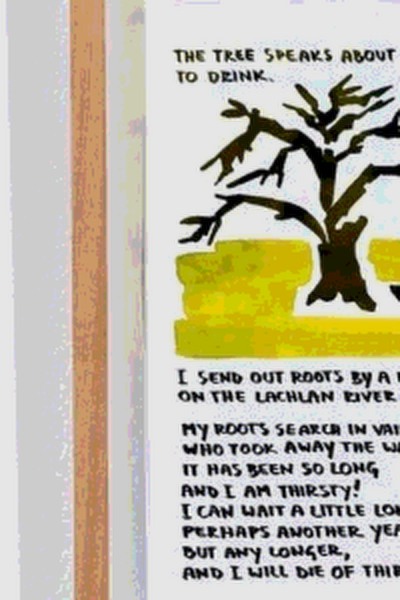 THE TREE SPEAKS ABOUT
TO DRINK.
I SEND OUT ROOTS BY A
ON THE LACHLAN RIVER
MY ROOTS SEARCH IN
WHO TOOK AWAY THE
IT HAS BEEN SO LONG
AND I AM THIRSTY!
I CAN WAIT A LITTLE
PERHAPS ANOTHER
BUT ANY LONGER,
AND I WILL DIE OF